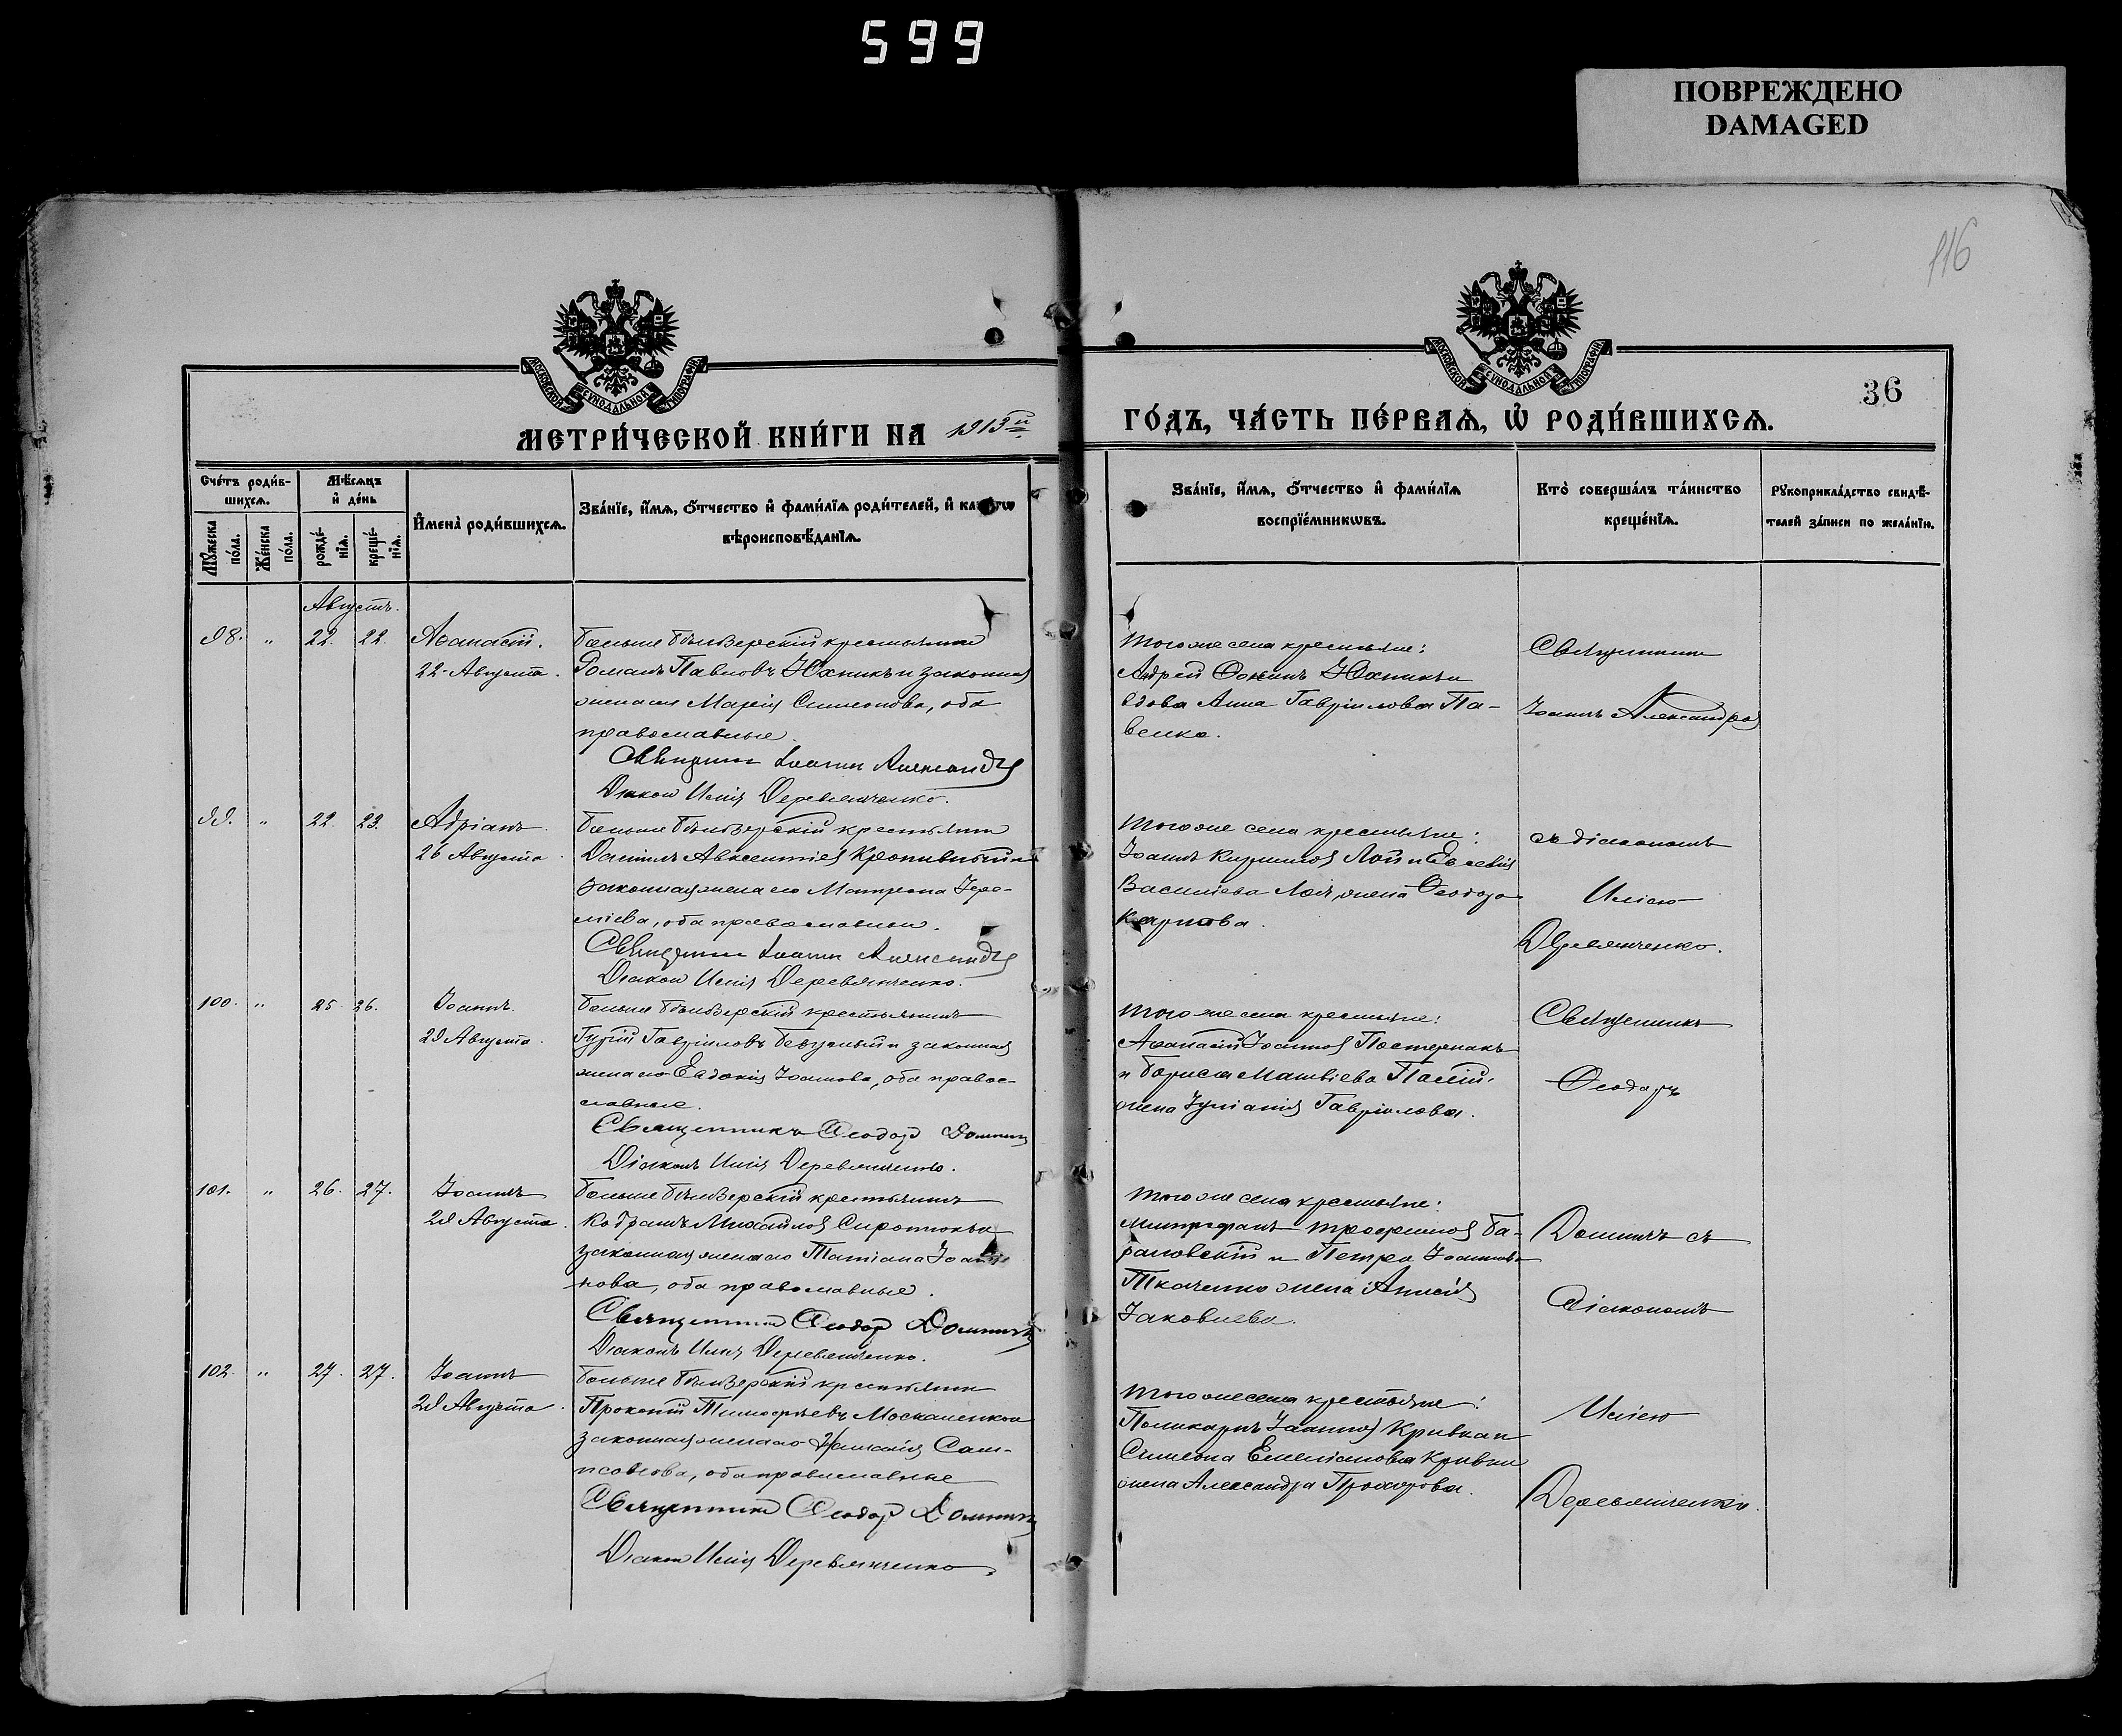 599
ПОВРЕЖДЕНО
DAMAGED
116
МОСКОВСКОЙ СѴНОДАЛЬНОЙ ТИПОГРАФІИ
МОСКОВСКОЙ СѴНОДАЛЬНОЙ ТИПОГРАФІИ
36
МЕТРИ́ЧЕСКОЙ КНИ́ГИ НА 1913й
ГО́ДЪ, ЧА́СТЬ ПЕ́РВАѦ, Ѡ҆ РОДИ́ВШИХСѦ.
Сче́тъ роди́в-
шихсѧ.
Мѣ́сѧцъ
и҆ де́нь
Мꙋ́жеска по́ла.
Же́нска по́ла.
рожде́-
нїѧ.
креще́-
нїѧ.
И҆мена̀ роди́вшихсѧ.
Зва́нїе, и҆́мѧ, ѻ҆́тчество и҆ фами́лїѧ роди́телей, и҆ како́гѡ
вѣроисповѣ́данїѧ.
Зва́нїе, и҆́мѧ, ѻ҆́тчество и҆ фами́лїѧ
воспрїе́мникѡвъ.
Кто̀ соверша́лъ та́инство
креще́нїѧ.
Рꙋкоприкла́дство свидѣ́-
телей за́писи по жела́нїю.
Августъ.
98. " 22. 22. Аѳанасій.
22 Августа.
крестьянинъ
Романъ Павловъ Юхникъ и законная
жена его Марія Симеонова, оба
православные.
Священникъ Іоаннъ Александровъ
Діаконъ Илія Деревянченко.
Того же села крестьяне:
Андрей Ѳокинъ Юхникъ и
вдова Анна Гавріилова Па-
венко.
Священникъ
Іоаннъ Александровъ
99. " 22 23. Адріанъ.
26 Августа.
крестьянинъ
Даніилъ Авксентіевъ Кропивный и
законная жена его Матрона Іере-
міева, оба православные.
Священникъ Іоаннъ Александровъ
Діаконъ Илія Деревянченко.
Того же села крестьяне:
Васильева жена Ѳеодора
Карпова.
съ діакономъ
Иліею
Деревянченко.
100. " 25 26. Іоаннъ.
29 Августа.
крестьянинъ
Гурій Гавріиловъ и законная
жена его Евдокія Іоаннова, оба правос-
лавные.
Священникъ Ѳеодоръ
Діаконъ Илія Деревянченко.
Того же села крестьяне:
Аѳанасій Іоанновъ Постернакъ
и Бориса Матвіева Палій
жена Іуліанія Гавріилова.
Священникъ
Ѳеодоръ
101. " 26. 27. Іоаннъ
29 Августа.
крестьянинъ
Кодратъ Михайловъ Сиротюкъ и
законная жена его Татіана Іоан-
нова, оба православные.
Священникъ Ѳеодоръ
Діаконъ Илія Деревянченко.
Того же села крестьяне:
Митрофанъ Трофимовъ Ба-
рановскій и Петра Іоаннова
Ткаченко жена Анисія
Іаковлева.
съ
діакономъ
102. " 27. 27. Іоаннъ
29 Августа.
крестьянинъ
Прокопій Тимоѳеевъ Москаленко и
законная жена его Наталія Сам-
псонова, оба православные
Священникъ Ѳеодоръ
Діаконъ Илія Деревянченко.
Того же села крестьяне:
Поликарпъ Іоанновъ Кривка и
Симеона Емеліанова Кривки
жена Александра Прохорова.
Иліею
Деревянченко.